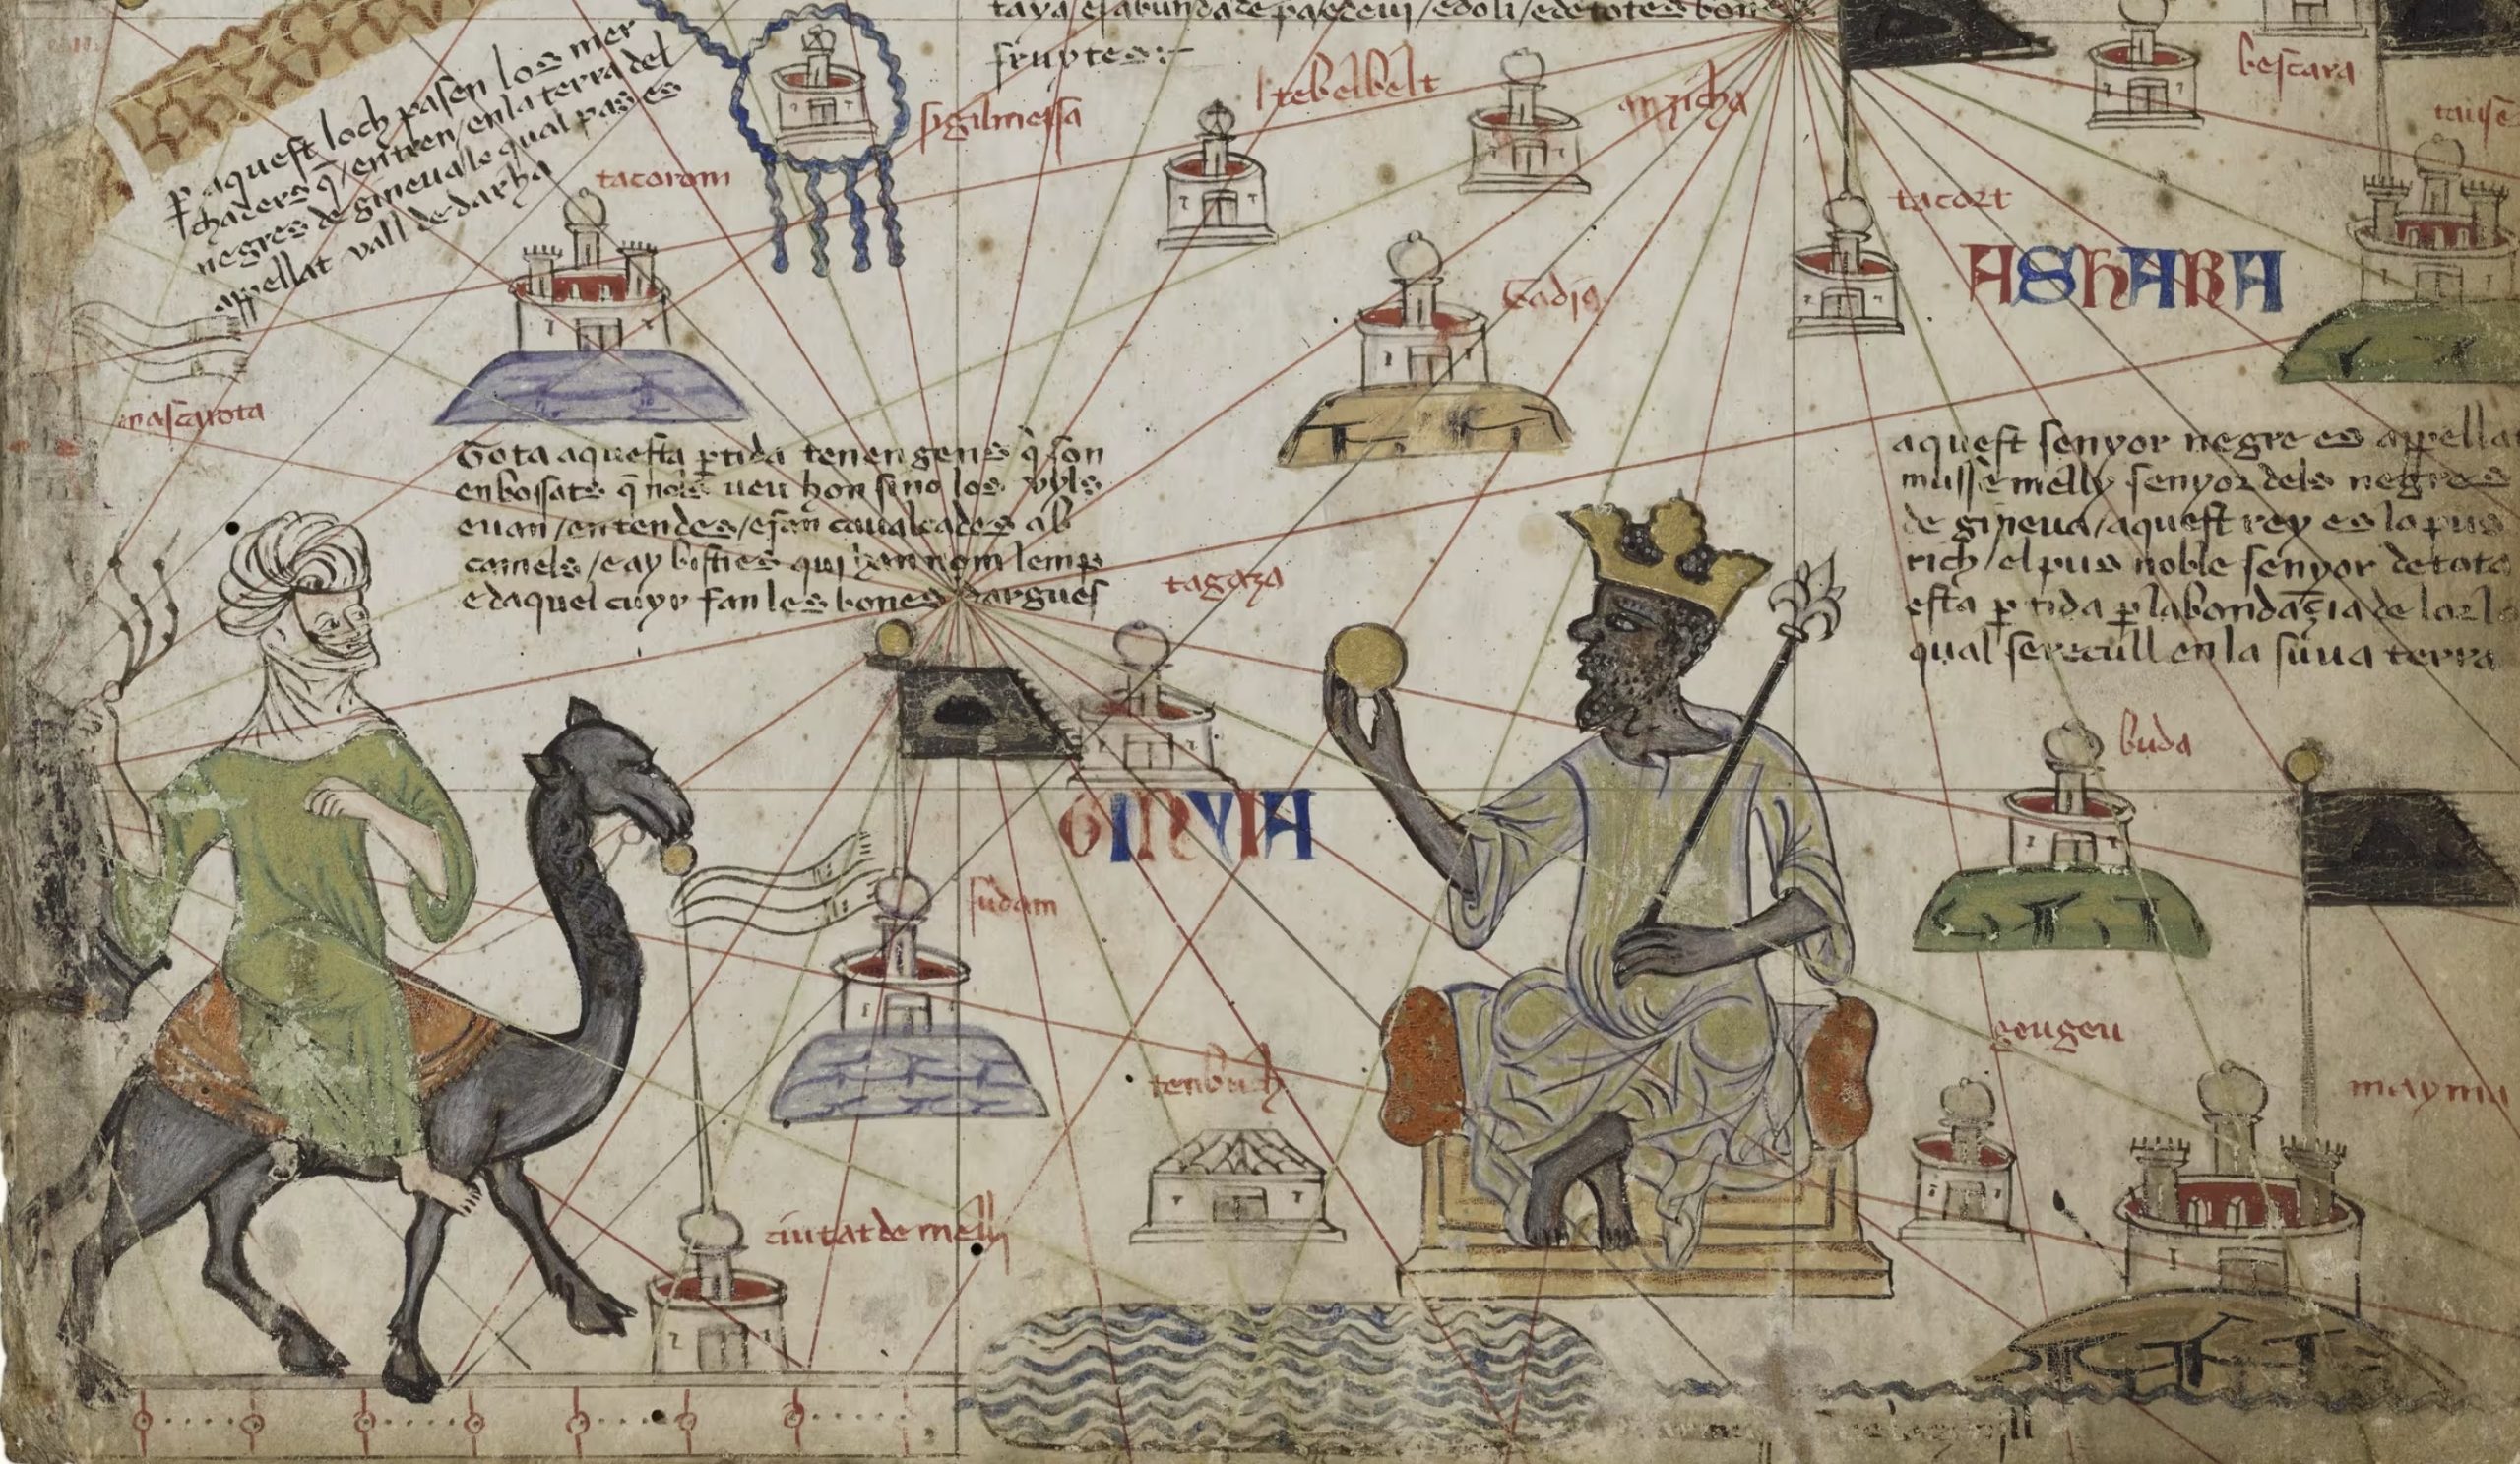 taya / e sabundade paedeui / edoli / edetotes bones
fruytes:
p̱ aquest loch pasen los mer
chaders q̄ / entren / en la terra del
negres de gineua lo qual pas es
appellat vall de darha
sigilmessa
tebelbelt
anzicha
bescara
tacorom
tacort
ASHARA
Gota aquesta ꝑtida tenen gens q̄ son
enbossats q̄ nols ueu hon sino los uyls
euan / en tendes / e fan caualcades ab
camels / e ay bisties qui han nom lemp
e daquel cuyr fan les bones dargues
aquest senyor negre es appella
musse melly senyor dels negres
de gineua / aquest rey es lo pus
rich / el pus noble senyor de tota
esta ꝑtida ꝑ labondaçia de lor lo
qual se recull en la suua terra
tagaza
buda
GINYIA
sudam
geugeu
tenbuch
mayma
ciutat de melly